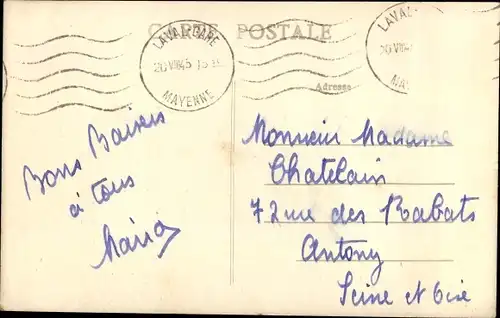 CARTE POSTALE
LAVAL-GARE
MAYENNE
LAVAL-
MAY
Adresse
Bons Baisers
à tous
Maria
Monsieur Madame
Chatelain
72 rue des Rabats
Antony
Seine et Oise